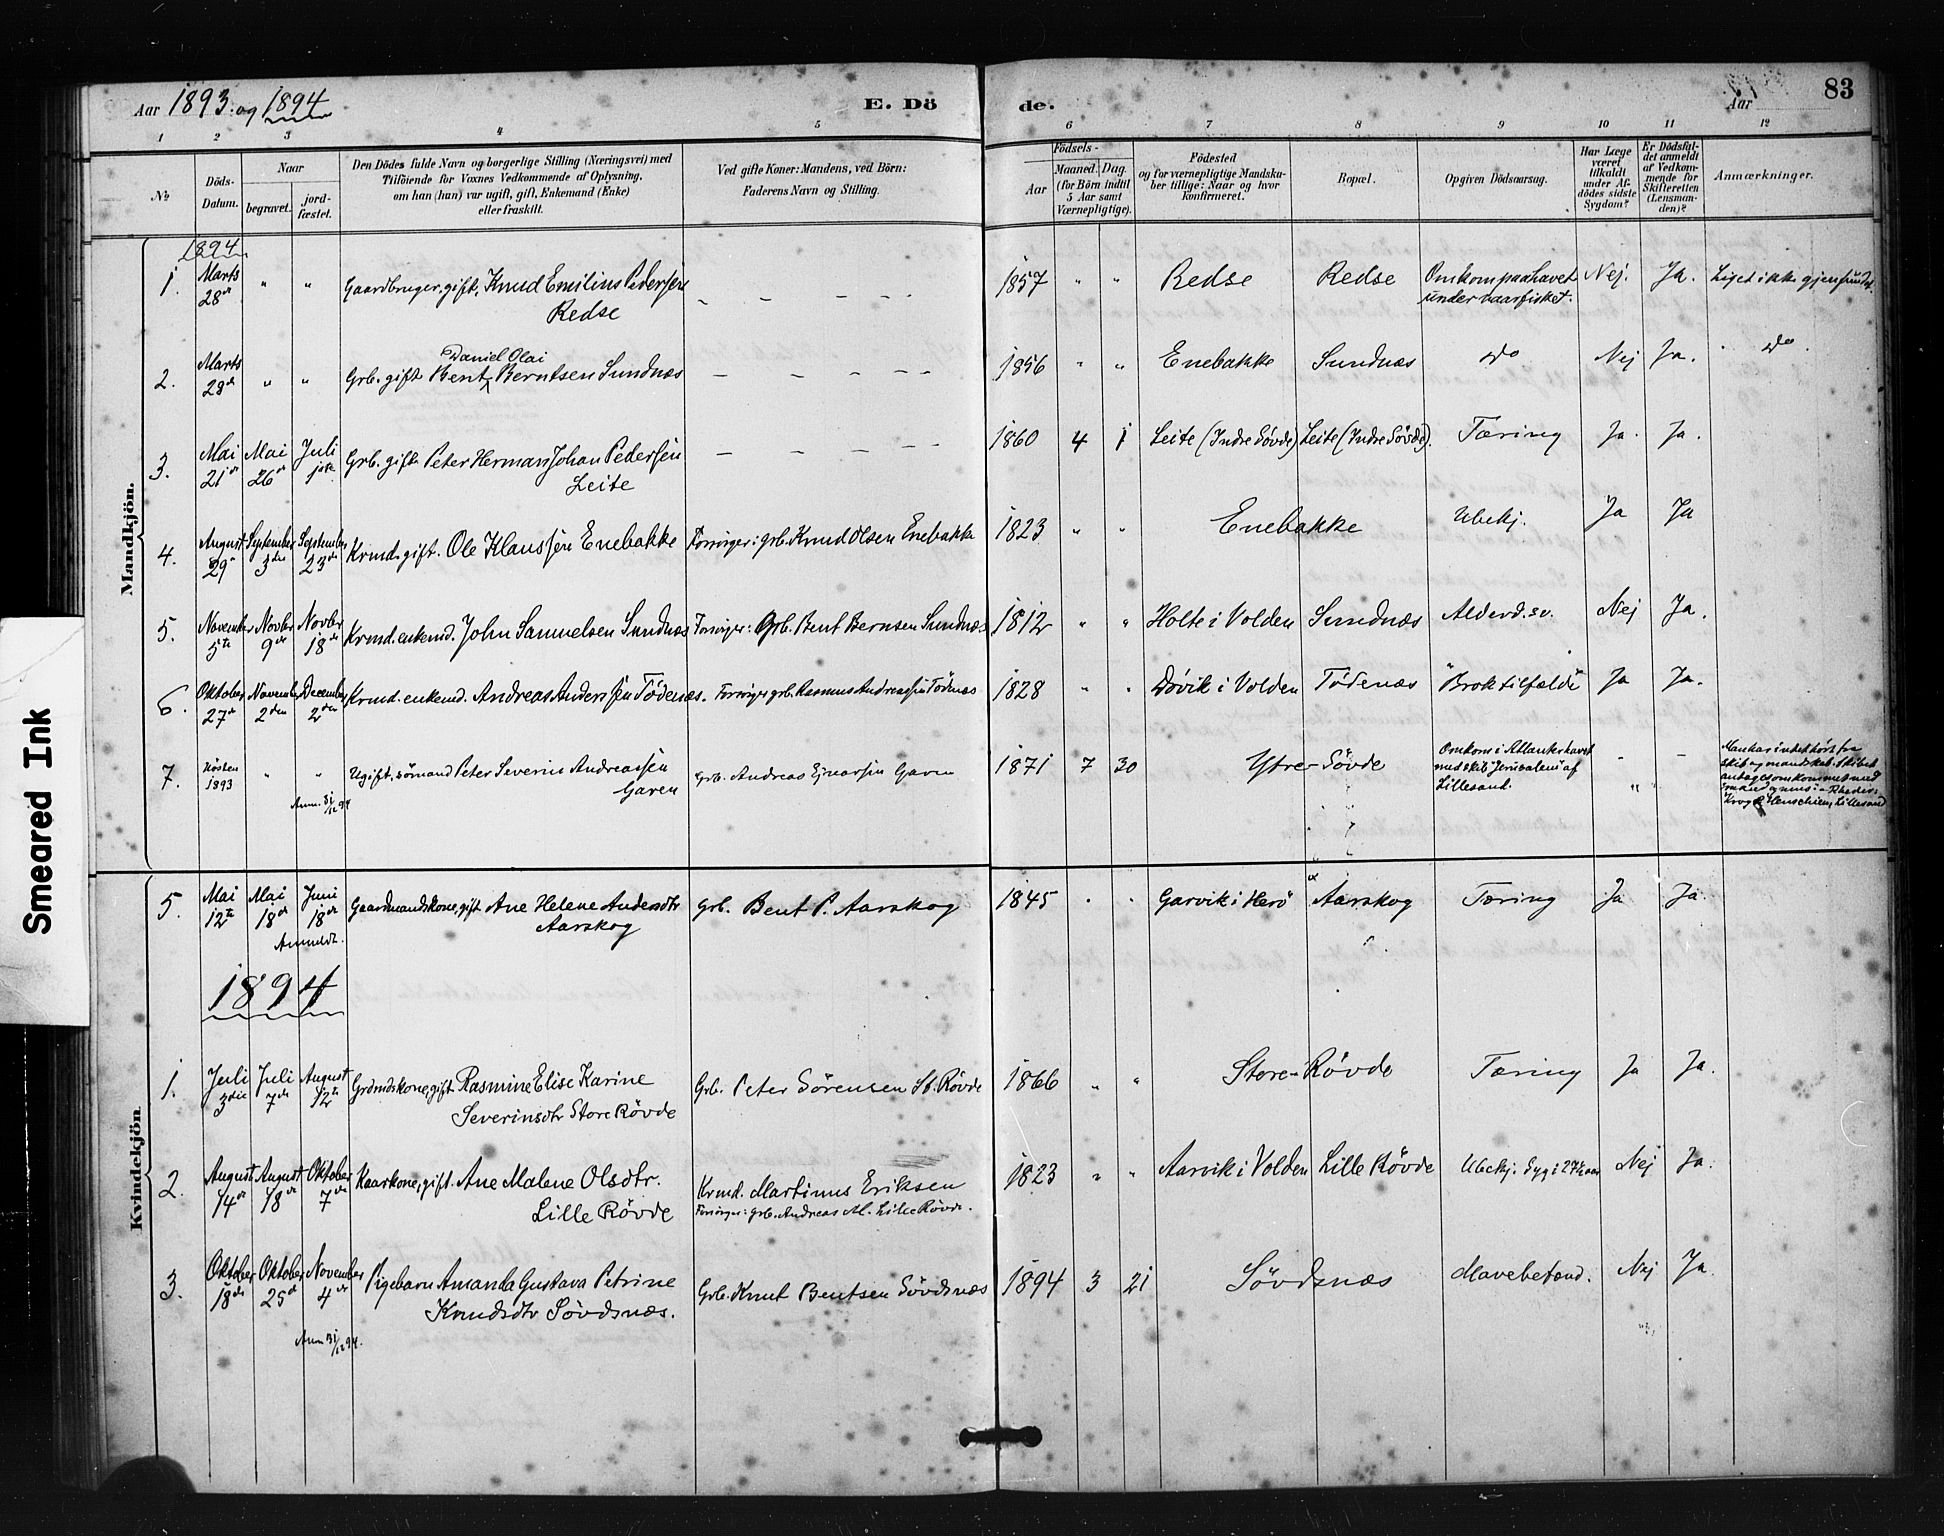 Aar 1893. og 1894
E. Dö de.
Aar
83
1 2 3 4 5 6 7 8 9 10 11 12
№
Döds-
Datum.
Naar
begravet.
jord-
fæstet.
Den Dödes fulde Navn og borgerlige Stilling (Næringsvei) med
Tilföiende for Voxnes Vedkommende af Oplysning,
om han (hun) var ugift, gift, Enkemand (Enke)
eller fraskilt.
Ved gifte Koner: Mandens, ved Börn:
Faderens Navn og Stilling.
Födsels-
Aar
Maaned. Dag
(for Börn indtil
5 Aar samt
Værnepligtige).
Födested
og for værnepligtige Mandsku-
ber tillige: Naar og hvor
konfirmeret.
Bopæl.
Opgiven Dödsaarsag.
Har Læge
været
tilkaldt
under Af-
dödes sidste
Sygdom?
Er Dödsfal-
det anmeldt
af Vedkom-
mende for
Skifteretten
(Lensman-
den)?
Anmærkninger.
Smeared Ink
Mandkjön.
1894
1. Marts 28de " " Gaardbruger, gift, Knud Emilius Pedersen
Redse
– – – – – 1857 " " Redse Redse Omkom paa havet
under vaarfisket. Nej. Ja. Liget ikke gjenfundet.
Daniel Olai
2. Marts 28de " " Grb. gift Bent Berntsen Sundnæs – – – – – 1856 " " Enebakke Sundnæs Do Nej Ja. Do
3. Mai 21de Mai 26de Juli 1ste Grb. gift Peter Herman Johan Pedersen
Leite
– – – – – 1860 4 1 Leite (Indre Sövde) Leite (Indre Sövde). Tæring Ja. Ja.
4. August 29de September 3die September 23de Krmd. gift. Ole Klaussen Enebakke Forsörger: grb. Knud Olsen Enebakke 1823 " " Enebakke Ubekj. Ja Ja
5. November 5te Novbr 9de Novbr 18de Krmd. enkemd. John Samuelsen Sundnæs Forsörger: Grb. Bent Bernsen Sundnæs 1812 " " Holte i Volden Sundnæs Alderd.sv. Nej Ja.
6. Oktober 27de November 2den December 2den Krmd. enkemd. Andreas Andersen Tödenæs. Forsörger grb. Rasmus Andreassen Tödnæs 1828 " " Dövik i Volden Tödenæs "Broktilfælde" Ja Ja.
7. Hösten 1893 " " Ugift, sömand Peter Severin Andreassen
Garen
Grb. Andreas Ejnarsen Garen 1871 7 30 Ytre-Sövde Omkom i Atlanterhavet
med skib "Jerusalem" af
Lillesand.
Man har intet hört fra
skib og mandskab. Skibet
antages omkommet med
mand og mus
Krog & Henschien, Lillesand
Anm. 31/12 94
Kvindekjön.
5. Mai 12te Mai 18de Juni 18de Gaardmandskone, gift Ane Helene Andersdtr
Aarskog
Grb. Bent P. Aarskog 1845 " " Garvik i Herö Aarskog Tæring Ja Ja.
Anmeldt.
1894
1. Juli 3die Juli 7de August 12te Grdmdskone, gift Rasmine Elise Karine
Severinsdtr Store Rövde
Grb. Peter Sörensen St. Rövde 1866 " " Store-Rövde Tæring Ja Ja.
2. August 14de August 18de Oktober 7de Kaarkone, gift. Ane Malene Olsdtr.
Lille Rövde
Krmd. Martinus Eriksen
Forsörger: grb. Andreas M. Lille Rövde.
1823 " " Aarvik i Volden Lille Rövde Ubekj. Syg i 27½ aar Nej Ja.
3. Oktober 18de Oktober 25de November 4de Pigebarn Amanda Gustava Petrine
Knudsdtr Sövdsnæs.
Grb. Knut Bentsen Sövdsnæs 1894 3 21 Sövdsnæs Mavebetænd. Nej Ja.
Anm 31/12 94.